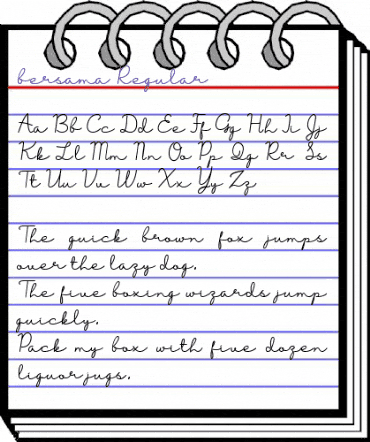 bersama Regular
Aa Bb Cc Dd Ee Ff Gg Hh Ii Jj
Kk Ll Mm Nn Oo Pp Qq Rr Ss
Tt Uu Vv Ww Xx Yy Zz
The quick brown fox jumps
over the lazy dog.
The five boxing wizards jump
quickly.
Pack my box with five dozen
liquor jugs.